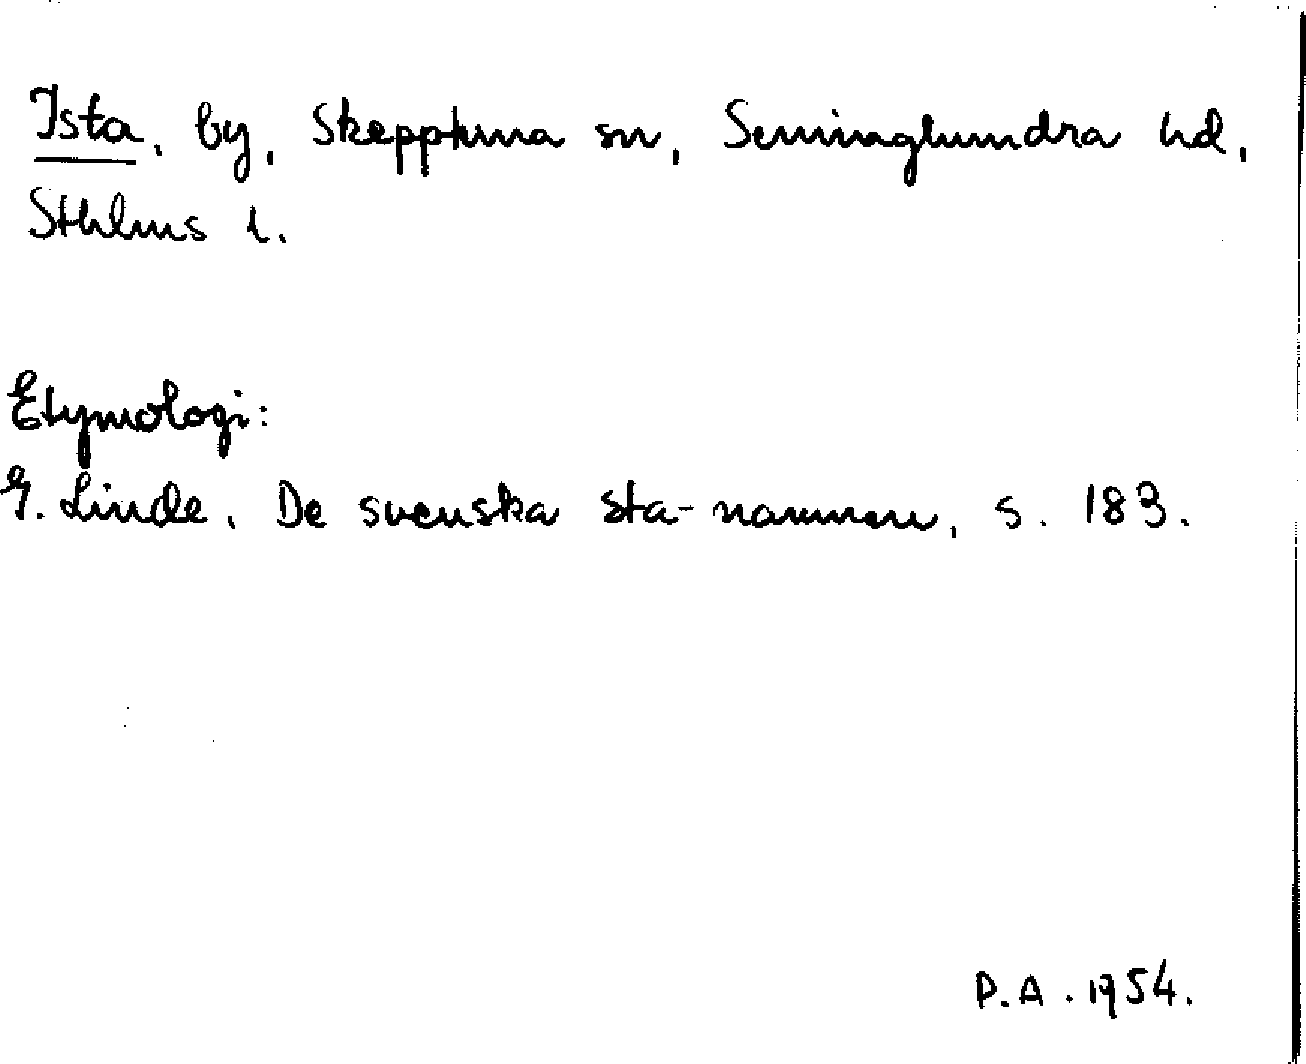 Ista, by, Skepptuna sn, Seminghundra hd,
Sthlms l.
Etymologi:
G. Linde, De svenska sta-namnen, s. 183.
P.A. 1954.